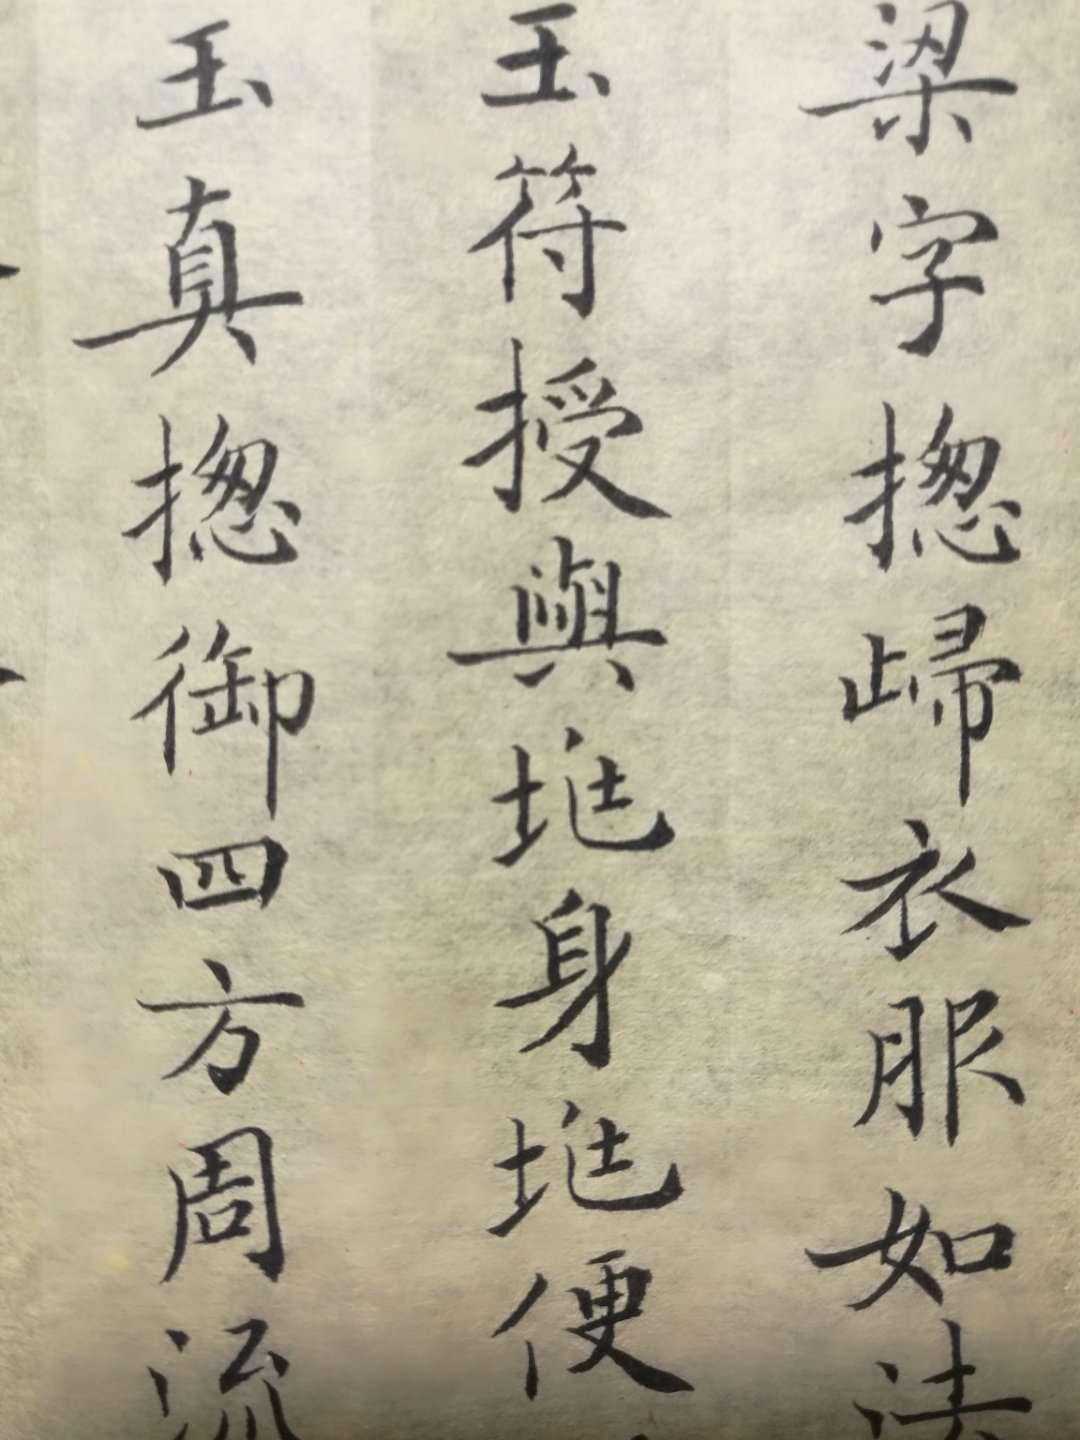 梁字揔㱕衣服如法
玉符授與垗身垗便
玉真揔御四方周流